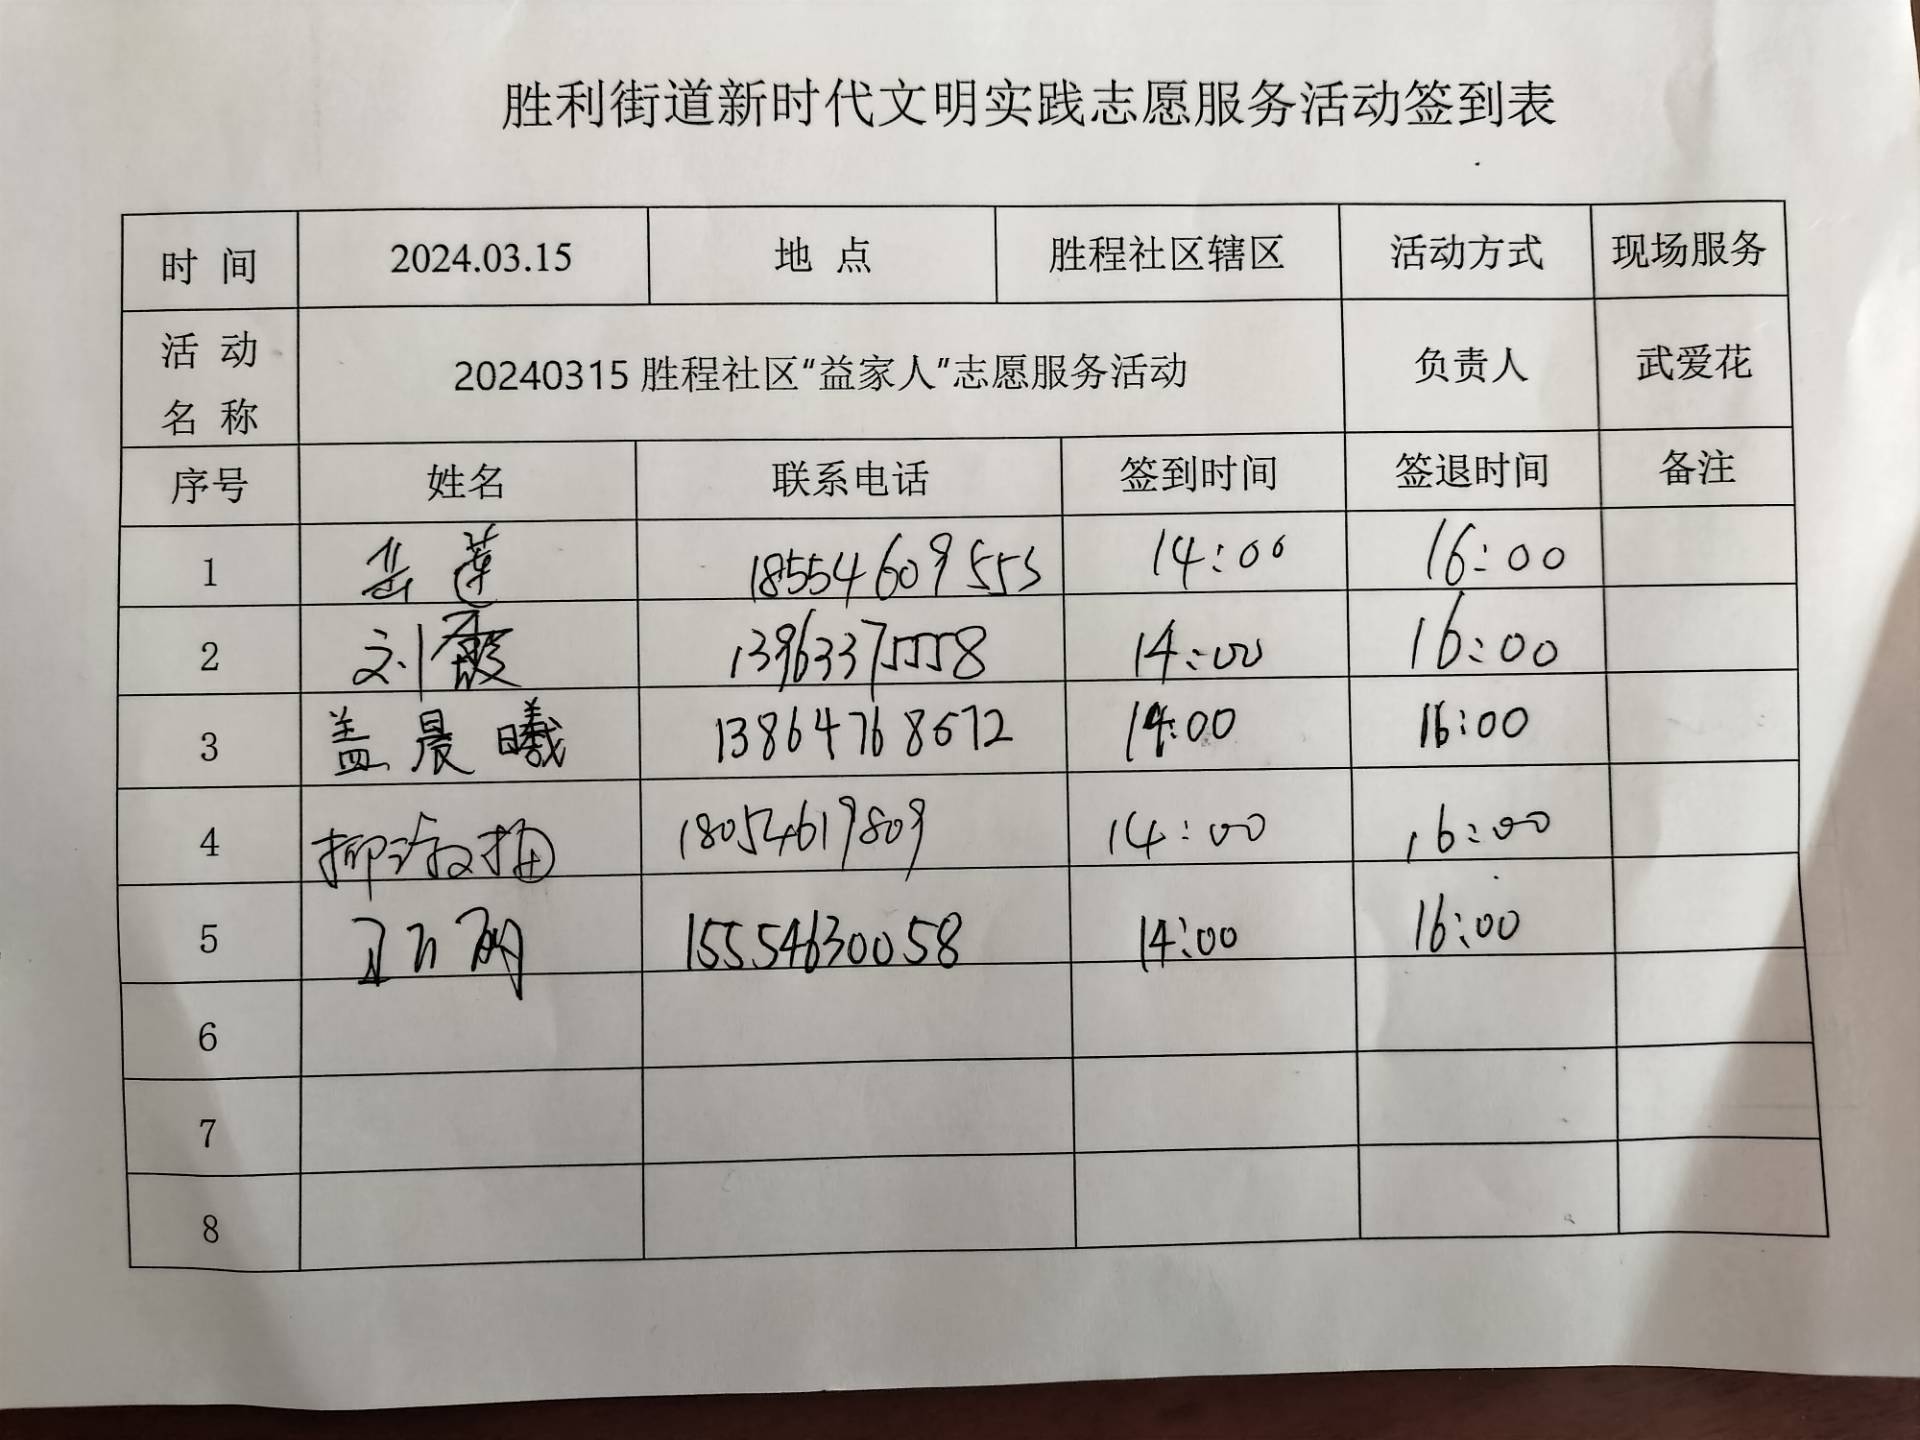 胜利街道新时代文明实践志愿服务活动签到表
时 间 2024.03.15 地 点 胜程社区辖区 活动方式 现场服务
活 动
名 称 20240315胜程社区“益家人”志愿服务活动 负责人 武爱花
序号 姓名 联系电话 签到时间 签退时间 备注
1 岳莲 18554609553 14:00 16:00
2 刘霞 13963375558 14:00 16:00
3 盖晨曦 13864768672 14:00 16:00
4 18054619809 14:00 16:00
5 15554630058 14:00 16:00
6
7
8